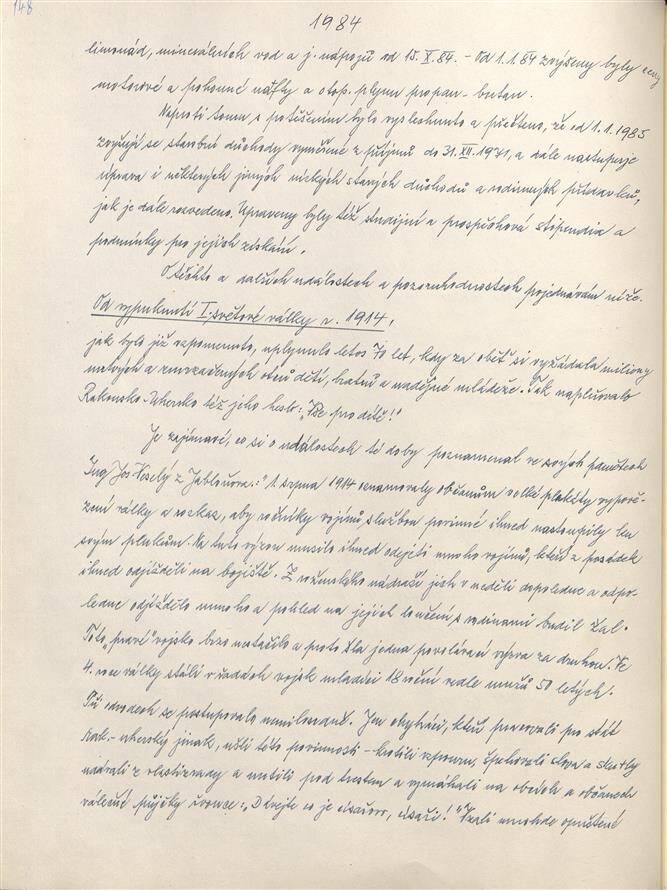 148
1984
limonád, minerálních vod a j. nápojů od 15.X.84. - Od 1.1.84 zvýšeny byly ceny
motorové a pohonné nafty a otop. plynu propan-butan.
Naproti tomu s potěšením bylo vyslechnuto a přečteno, že od 1.1.1985
zvyšují se starobní důchody vyměřené z příjmů do 31.XII.1971, a dále nastupuje
úprava i některých jiných nízkých starých důchodů a rodinných přídavků,
jak je dále rozvedeno. Upraveny byly též studijní a prospěchová stipendia a
podmínky pro jejich získání.
O těchto a dalších událostech a pozoruhodnostech pojednávám níže.
Od vypuknutí I. světové války r. 1914,
jak bylo již vzpomenuto, uplynulo letos 70 let, kdy za oběť si vyžádala miliony
mrtvých a zmrzačených otců dětí, bratrů a nadějné mládeže. Tak naplňovalo
Rakousko-Uhersko též jeho heslo: "Vše pro dítě!"
Je zajímavé, co si o událostech té doby poznamenal ve svých pamětech
Ing Jos. Veselý z Jablonova: "1 srpna 1914 oznamovaly občanům velké plakáty vypově-
zení války a rozkaz, aby ročníky vojínů službou povinné ihned nastoupily ku
svým plukům. Na tuto výzvu musilo ihned odejíti mnoho vojínů, kteří z posádek
ihned odjížděli na bojiště. Z nádraží jich v neděli dopoledne a odpo-
ledne odjíždělo mnoho a pohled na jejich loučení s rodinami budil žal.
Toto "pravé" vojsko brzo nestačilo a proto šla jedna povolávací výzva za druhou. Ve
4. roce války stáli v řadách voják mladší 18 roční vedle mužů 50 letých.
Při odvodech se postupovalo nemilosrdně. Jen obyvatelé, kteří pracovali pro stát
Rak.-uherský jinak, ušli této povinnosti - krotili vzpouru, špehovali slova a skutky
udávali z vlastizrady a nutili pod trestem a vymáhali na obcích a občanech
válečné půjčky: "Dávejte co je císařovo, císaři!" Vzali mnohde opuštěné